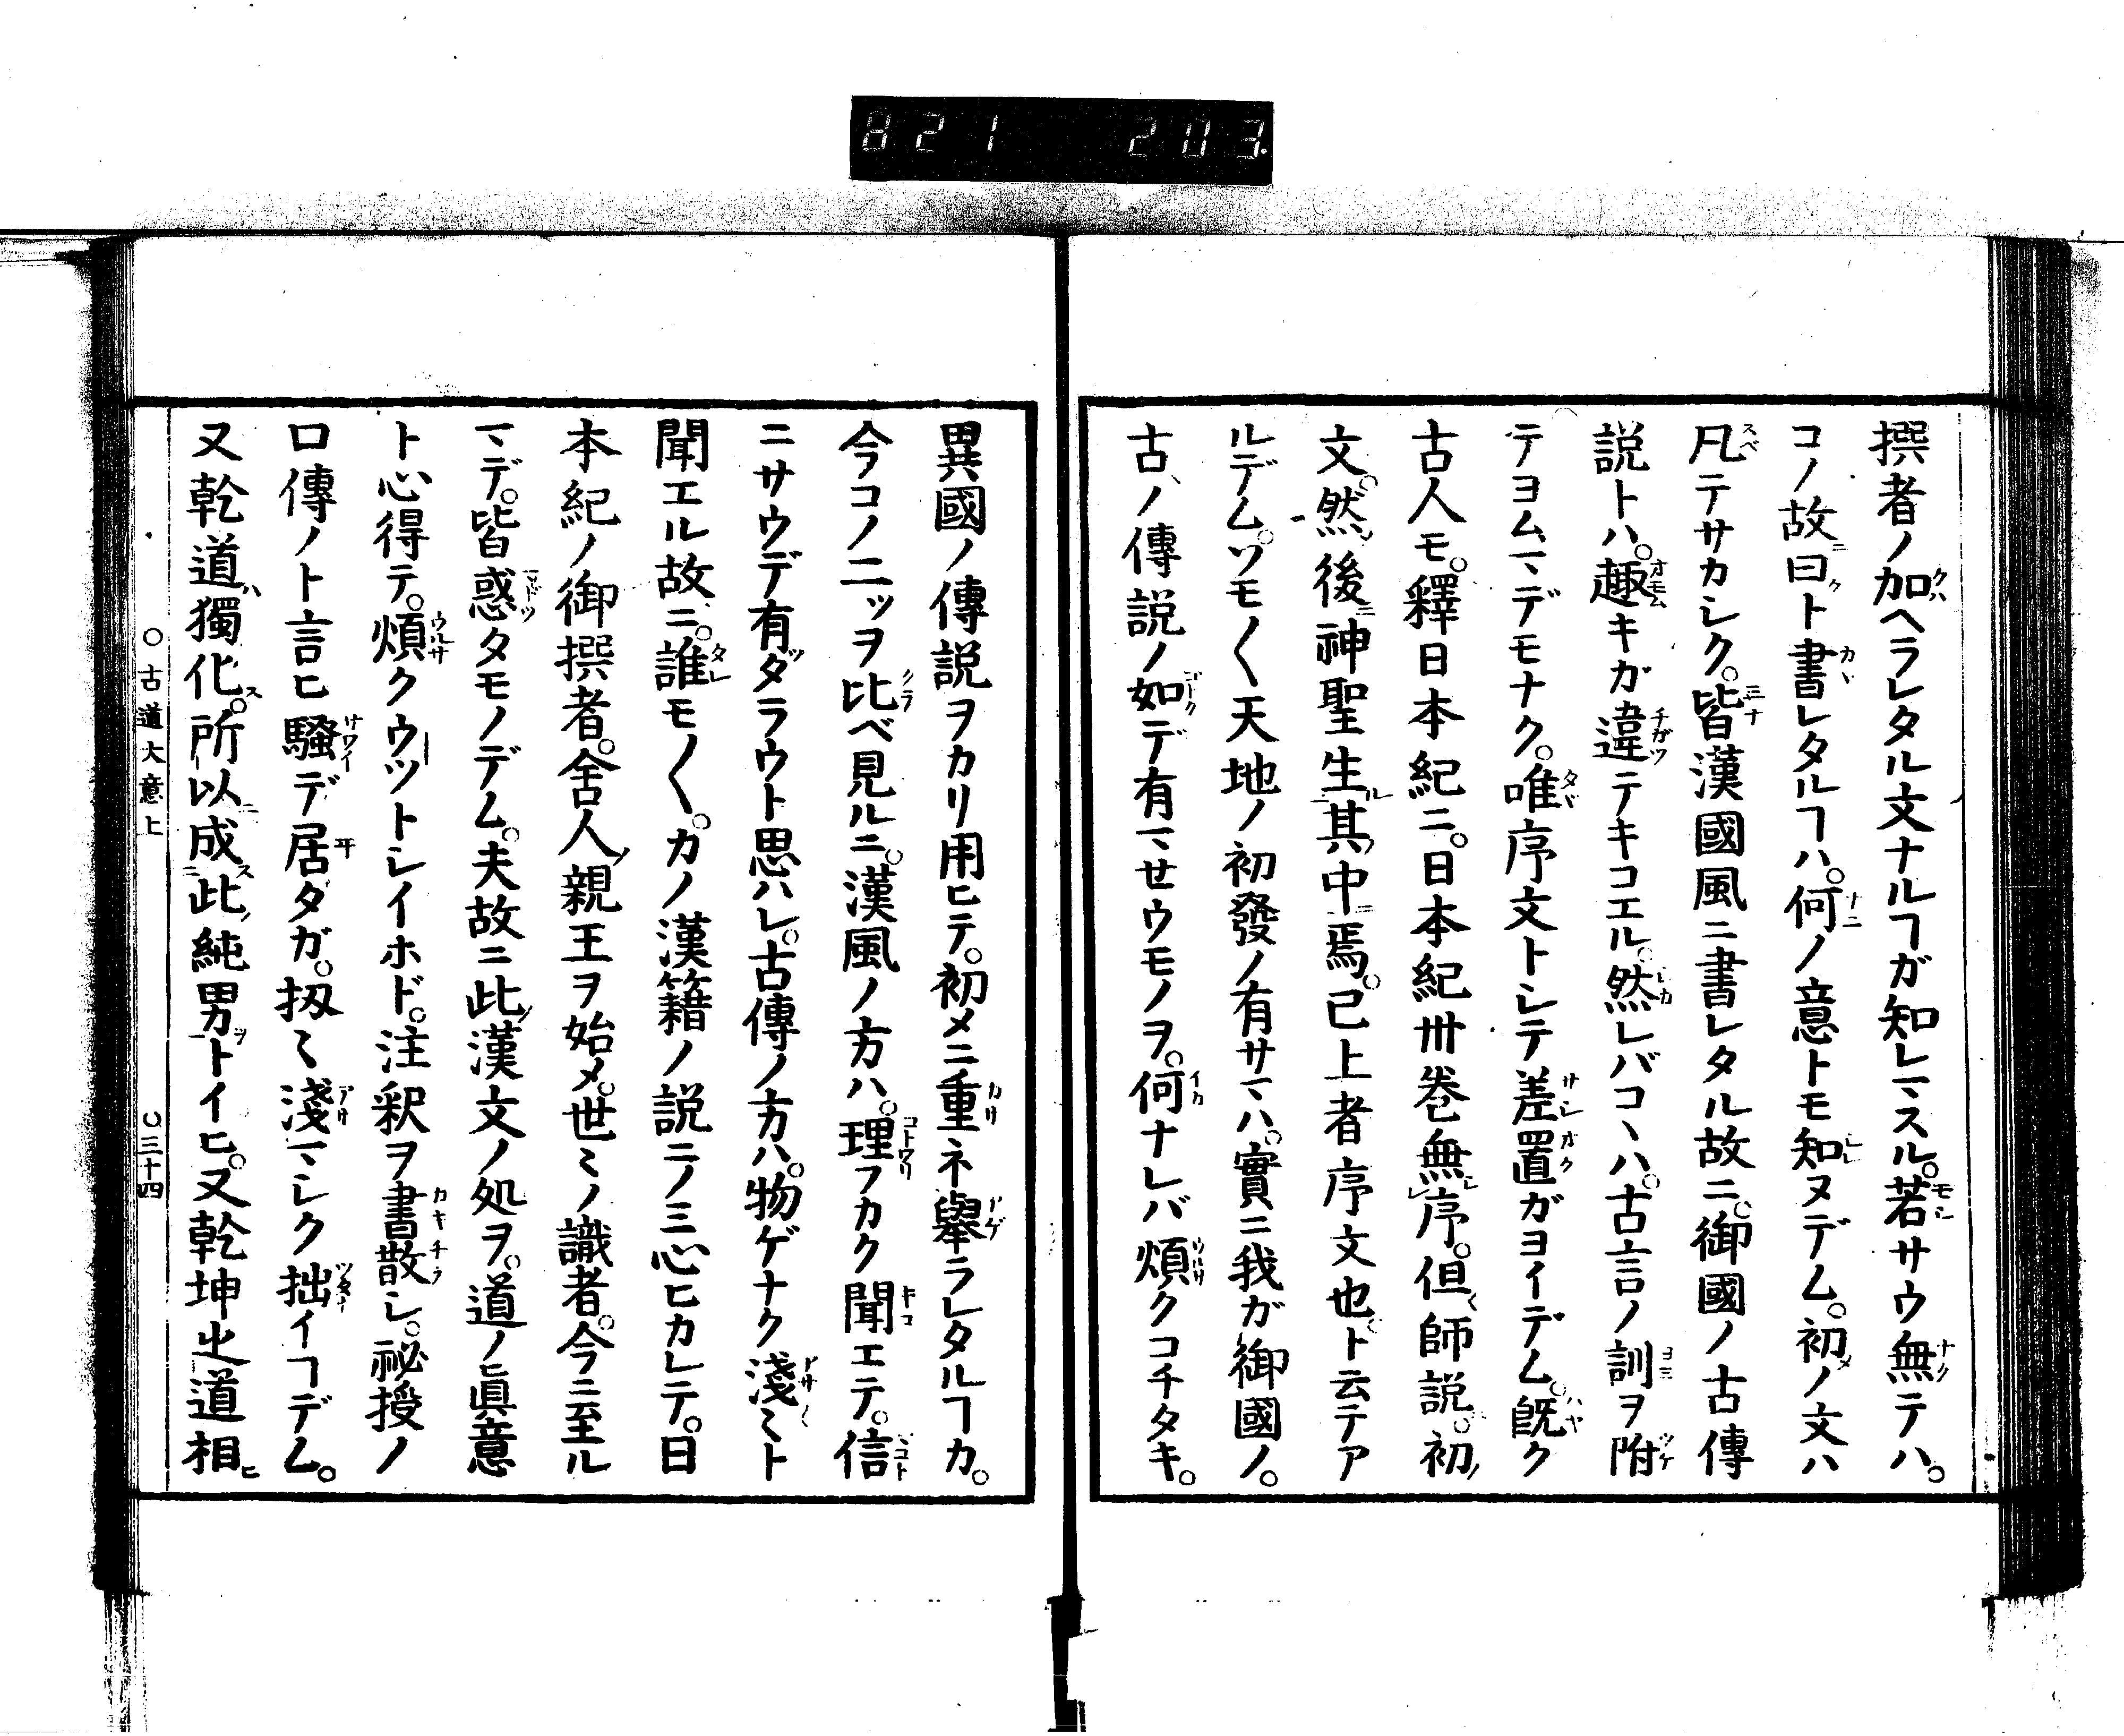 821 203.
撰者ノ加ヘラレタル文ナルヿガ知レマスル。若サウ無テハ。
コノ故曰ト書レタルヿハ。何ノ意トモ知ヌデム。初ノ文ハ
凡テサカシク。皆漢國風ニ書レタル故ニ。御國ノ古傳
説トハ。趣キガ違テキコエル。然レバコヽハ。古言ノ訓ヲ附
テヨムマデモナク。唯序文トシテ差置ガヨイデム。既ク
古人モ。釋日本紀ニ。日本紀卅卷無序。但師説。初
文。然後神聖生其中焉。已上者序文也。ト云テア
ルデム。ソモ〱天地ノ初發ノ有サマハ。實ニ我ガ御國ノ。
古ノ傳説ノ如デ有マセウモノヲ。何ナレバ煩クコチタキ。
異國ノ傳説ヲカリ用ヒテ。初メニ重ネ擧ラレタルヿカ。
今コノ二ッヲ比ベ見ルニ。漢風ノ方ハ。理フカク聞エテ。信
ニサウデ有ダラウト思ハレ。古傳ノ方ハ。物ゲナク淺ミト
聞エル故ニ。誰モ〱。カノ漢籍ノ説ニノミ心ヒカレテ。日
本紀ノ御撰者。舍人親王ヲ始メ。世ミノ識者。今ニ至ル
マデ。皆惑タモノデム。夫故ニ此漢文ノ処ヲ。道ノ眞意
ト心得テ。煩クウツトシイホド。注釈ヲ書散シ。祕授ノ
口傳ノト言ヒ騷デ居タガ。扨ミ淺マシク拙イヿデム。
又乾道獨化。所以成此純男トイヒ。又乾坤之道相
〇古道大意上 〇三十四